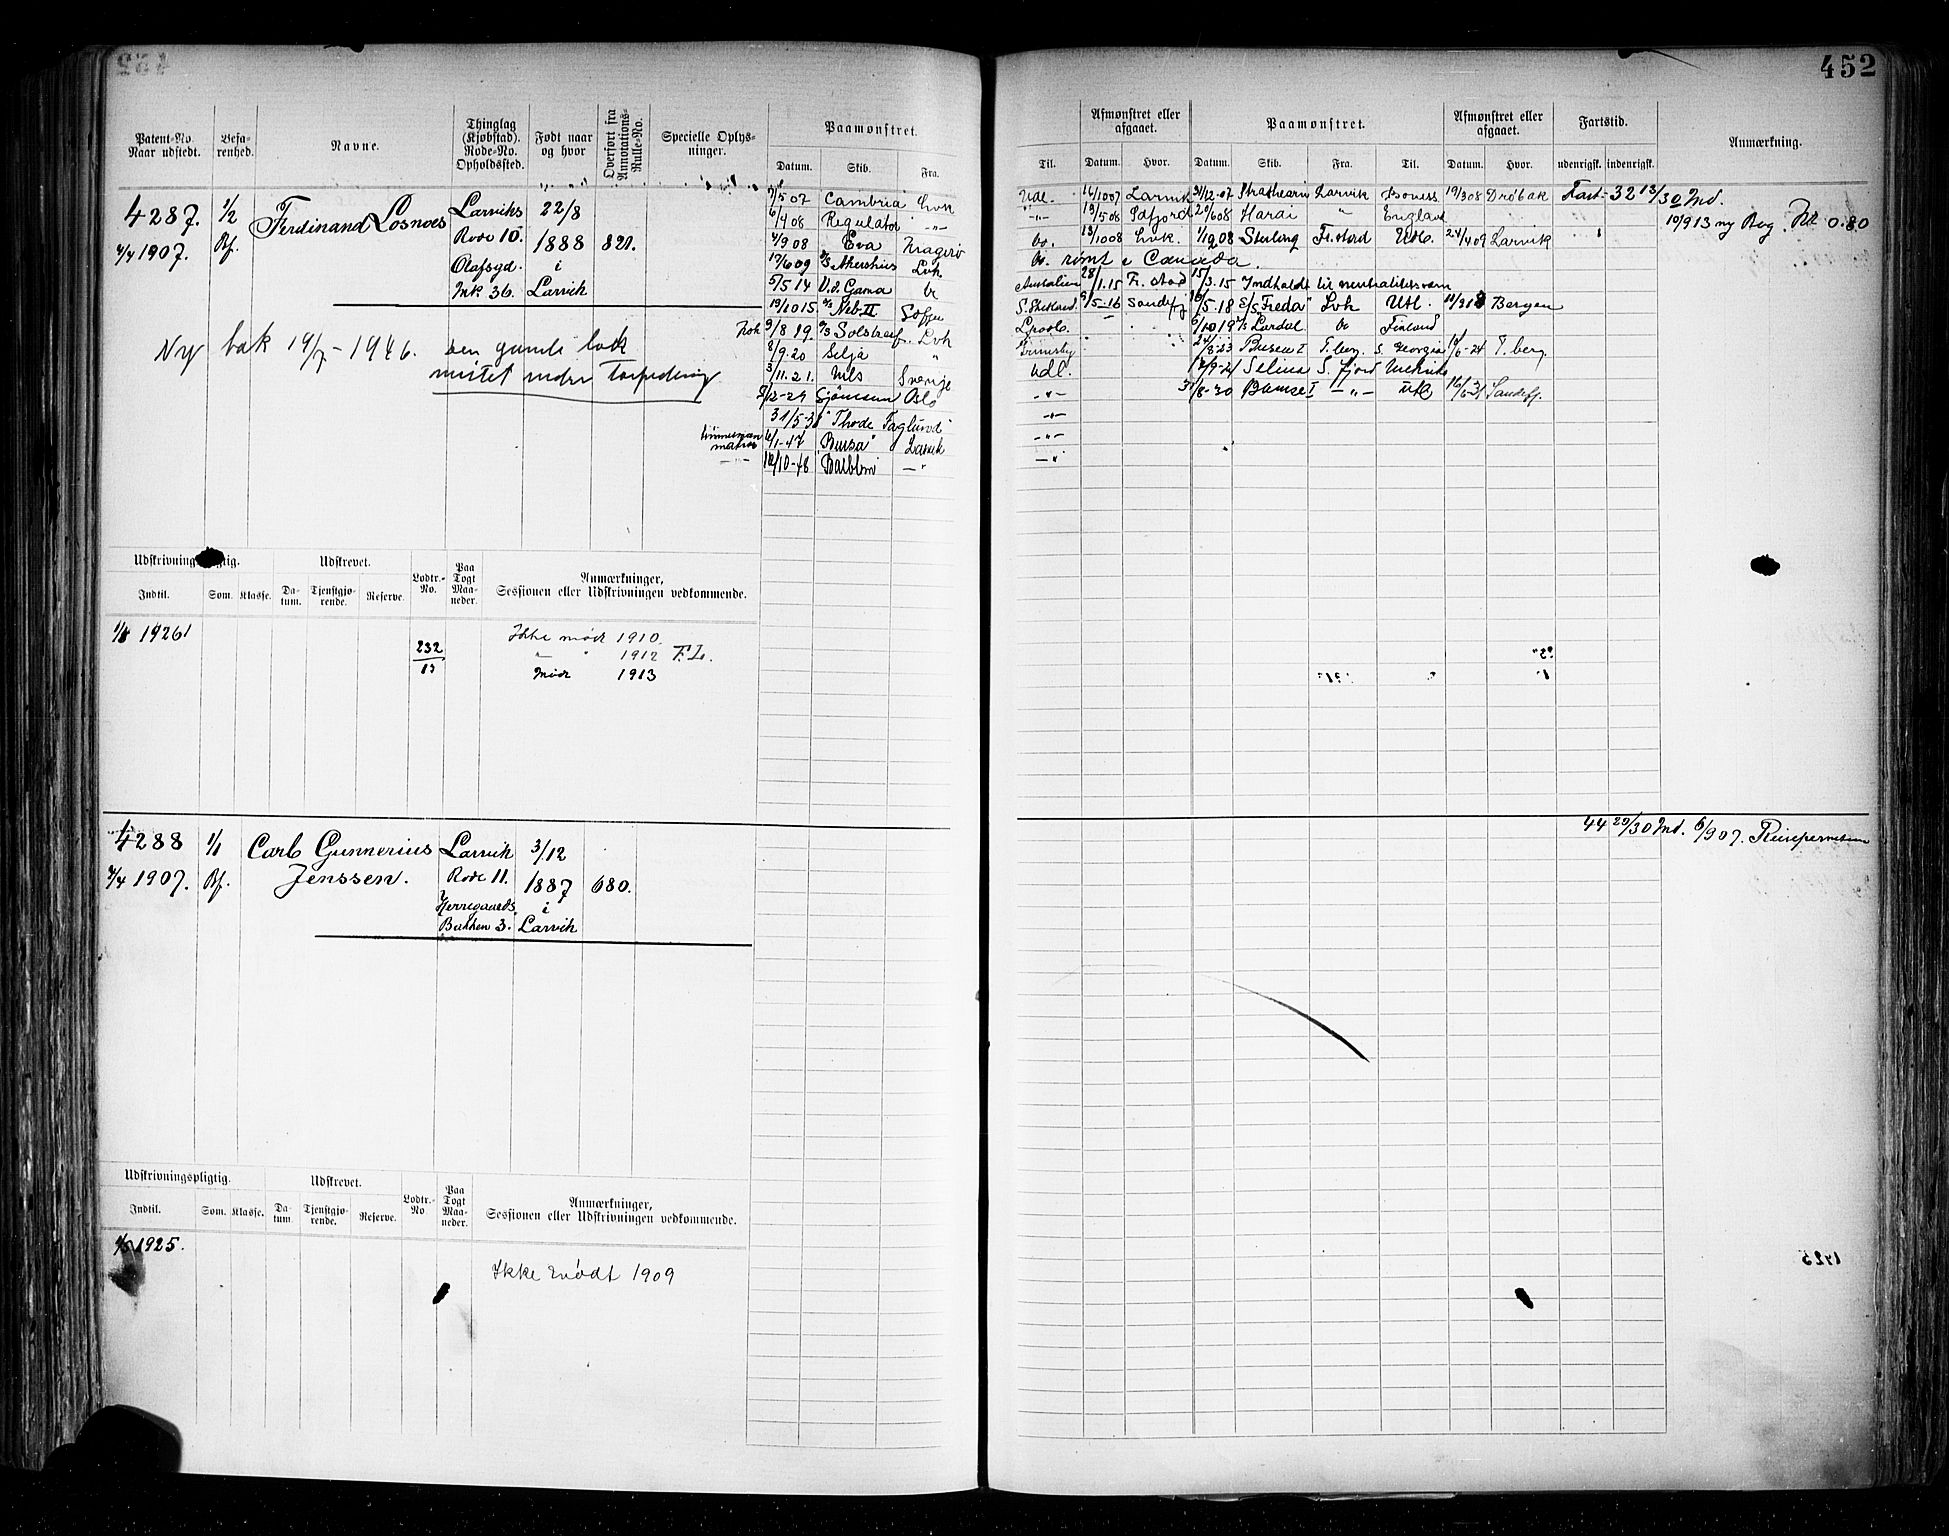 452
Patent-No. Naar udstedt.
Befarenhed.
Navne.
Thinglag (Kjøbstad). Rode-No. Opholdssted.
Født naar og hvor
Overført fra Annotations-Rulle-No.
Specielle Oplysninger.
Paamønstret.
Datum. Skib. Fra.
Til.
Afmønstret eller afgaaet.
Datum. Hvor.
Paamønstret.
Datum. Skib. Fra. Til.
Afmønstret eller afgaaet.
Datum. Hvor.
Fartstid.
udenrigsk. indenrigsk.
Anmærkning.
4287. 1/2 Ferdinand Losnæs Larviks 22/8
4/4 1907. Bf. Rode 10. 1888 821.
Olafsgd. i
Mk 36. Larvik
Ny bok 19/7-1946. den gamle bok
mistet under torpedering
7/5 07 Cambria Lvk
6/4 08 Regulator -"-
4/9 08 Eva Kragerø
17/6 09 Akershus Lvk
5/5 14 V.d. Gama do
19/10 15 Neb. II
9/8 19. Solstreif Lvk
8/9.20 Silja "
3/11.21. Nils Sverige
Sjømann Oslo
31/5-3 Thode Faglund
6/1-47 "Bursa" Larvik
/10-48 "Balblom" -"-
Udl. 16/10 07 Larvik 31/12.07 Strathearn Larvik Boness 19/3 08 Drøbak Fart- 32 13/30 Md.
-"- 19/5 08 Sdfjord 20/6 08 Harai " England 10/9 13 ny Bog. 0.80
do. 13/10 08 Lvk. 1/12 08 Sterling Fr.stad Utl. 24/4 09 Larvik
do. rømt i Canada
Australien 28/1.15 Fr.stad 15/3.15 Indkaldt til neutralitetsværn
9/5-16 Sandefj /5.18 S/S "Freda" Lvk Utl. Bergen
Lpool. 6/10 19 Lardal do Finland
Grimsby /8-23 Busen I T.berg. S. Georgia /6-24 T.berg.
Udl. /9-24 Selina S.fjord
-"- /8-30 Busse I -"- Utl. 16/6-31 Sandefj.
-"-
-"-
-"-
Udskrivningspligtig.
Udskrevet.
Lodtr.-No.
Paa Togt Maaneder.
Anmærkninger, Sessionen eller Udskrivningen vedkommende.
Indtil. Som. Klasse. Datum. Tjenstgjørende. Reserve.
1926 232 Ikke mødt 1910
13 " " 1912 F.L.
Mødt 1913
4288 1/1 Carl Gunnerius Larvik 3/12
4/4 1907. Bf. Jenssen. Rode 11. 1887 680.
Herregaards i
Bakken 3. Larvik
44 29/30 Md. 6/9 07. Reisepermission
Udskrivningspligtig.
Udskrevet.
Lodtr.-No
Paa Togt Maaneder.
Anmærkninger, Sessionen eller Udskrivningen vedkommende.
Indtil. Som. Klasse. Datum. Tjenstgjørende. Reserve.
1925.
Ikke mødt 1909